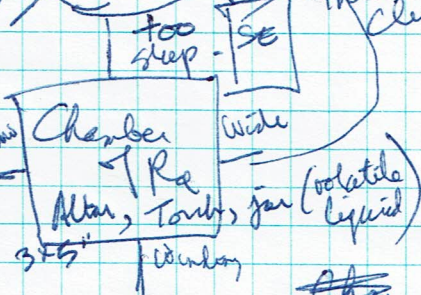 too
steep
SE
Chamber
Wide
Altar, Torch, jar (volatile
liquid)
3x5"
Winding